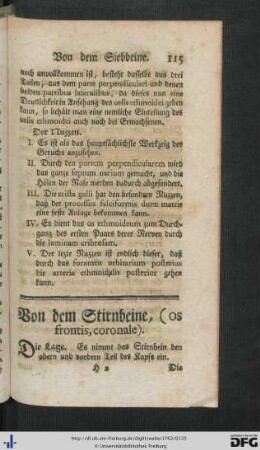 Von dem Siebbeine. 115
noch unvollkommen ist, bestehet dasselbe aus drei
Teilen; aus dem parte perpendiculari und denen
beiden partibus lateralibus; da dieses nun eine
Deutlichkeit in Ansehung des ossis ethmoidei geben
kann, so behält man eine nemliche Einteilung des
ossis ethmoidei auch noch bei Erwachsenen.
Der Nuzzen.
I. Es ist als das hauptsächlichste Werkzeig des
Geruchs anzusehen.
II. Durch den partem perpendicularem wird
das ganze septum narium gemacht, und die
Hölen der Nase werden dadurch abgesondert.
III. Die crista galli hat den besondern Nuzzen,
daß der processus falciformis durae matris
eine feste Anlage bekommen kann.
IV. Es dient das os ethmoideum zum Durch-
gang des ersten Paars derer Nerven durch
die laminam cribrosam.
V. Der lezte Nuzzen ist endlich dieser, daß
durch das foramen orbitarium posterius
die arteria ethmoidalis posterior gehen
kann.
Von dem Stirnbeine, (os
frontis, coronale).
Die Lage. Es nimmt das Stirnbein den
obern und vordern Teil des Kopfs ein.
H 2 Die
http://dl.ub.uni-freiburg.de/diglit/walter1763/0133
© Universitätsbibliothek Freiburg
gefördert durch die
DFG